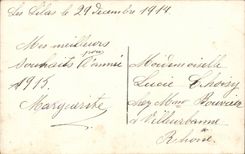 Les Lilas le 29 Decembre 1914
Mes meilleurs
souhaits d'année
1915
Marguerite
Mademoiselle
Lucie
chez Mme
à Villeurbanne
Rhône